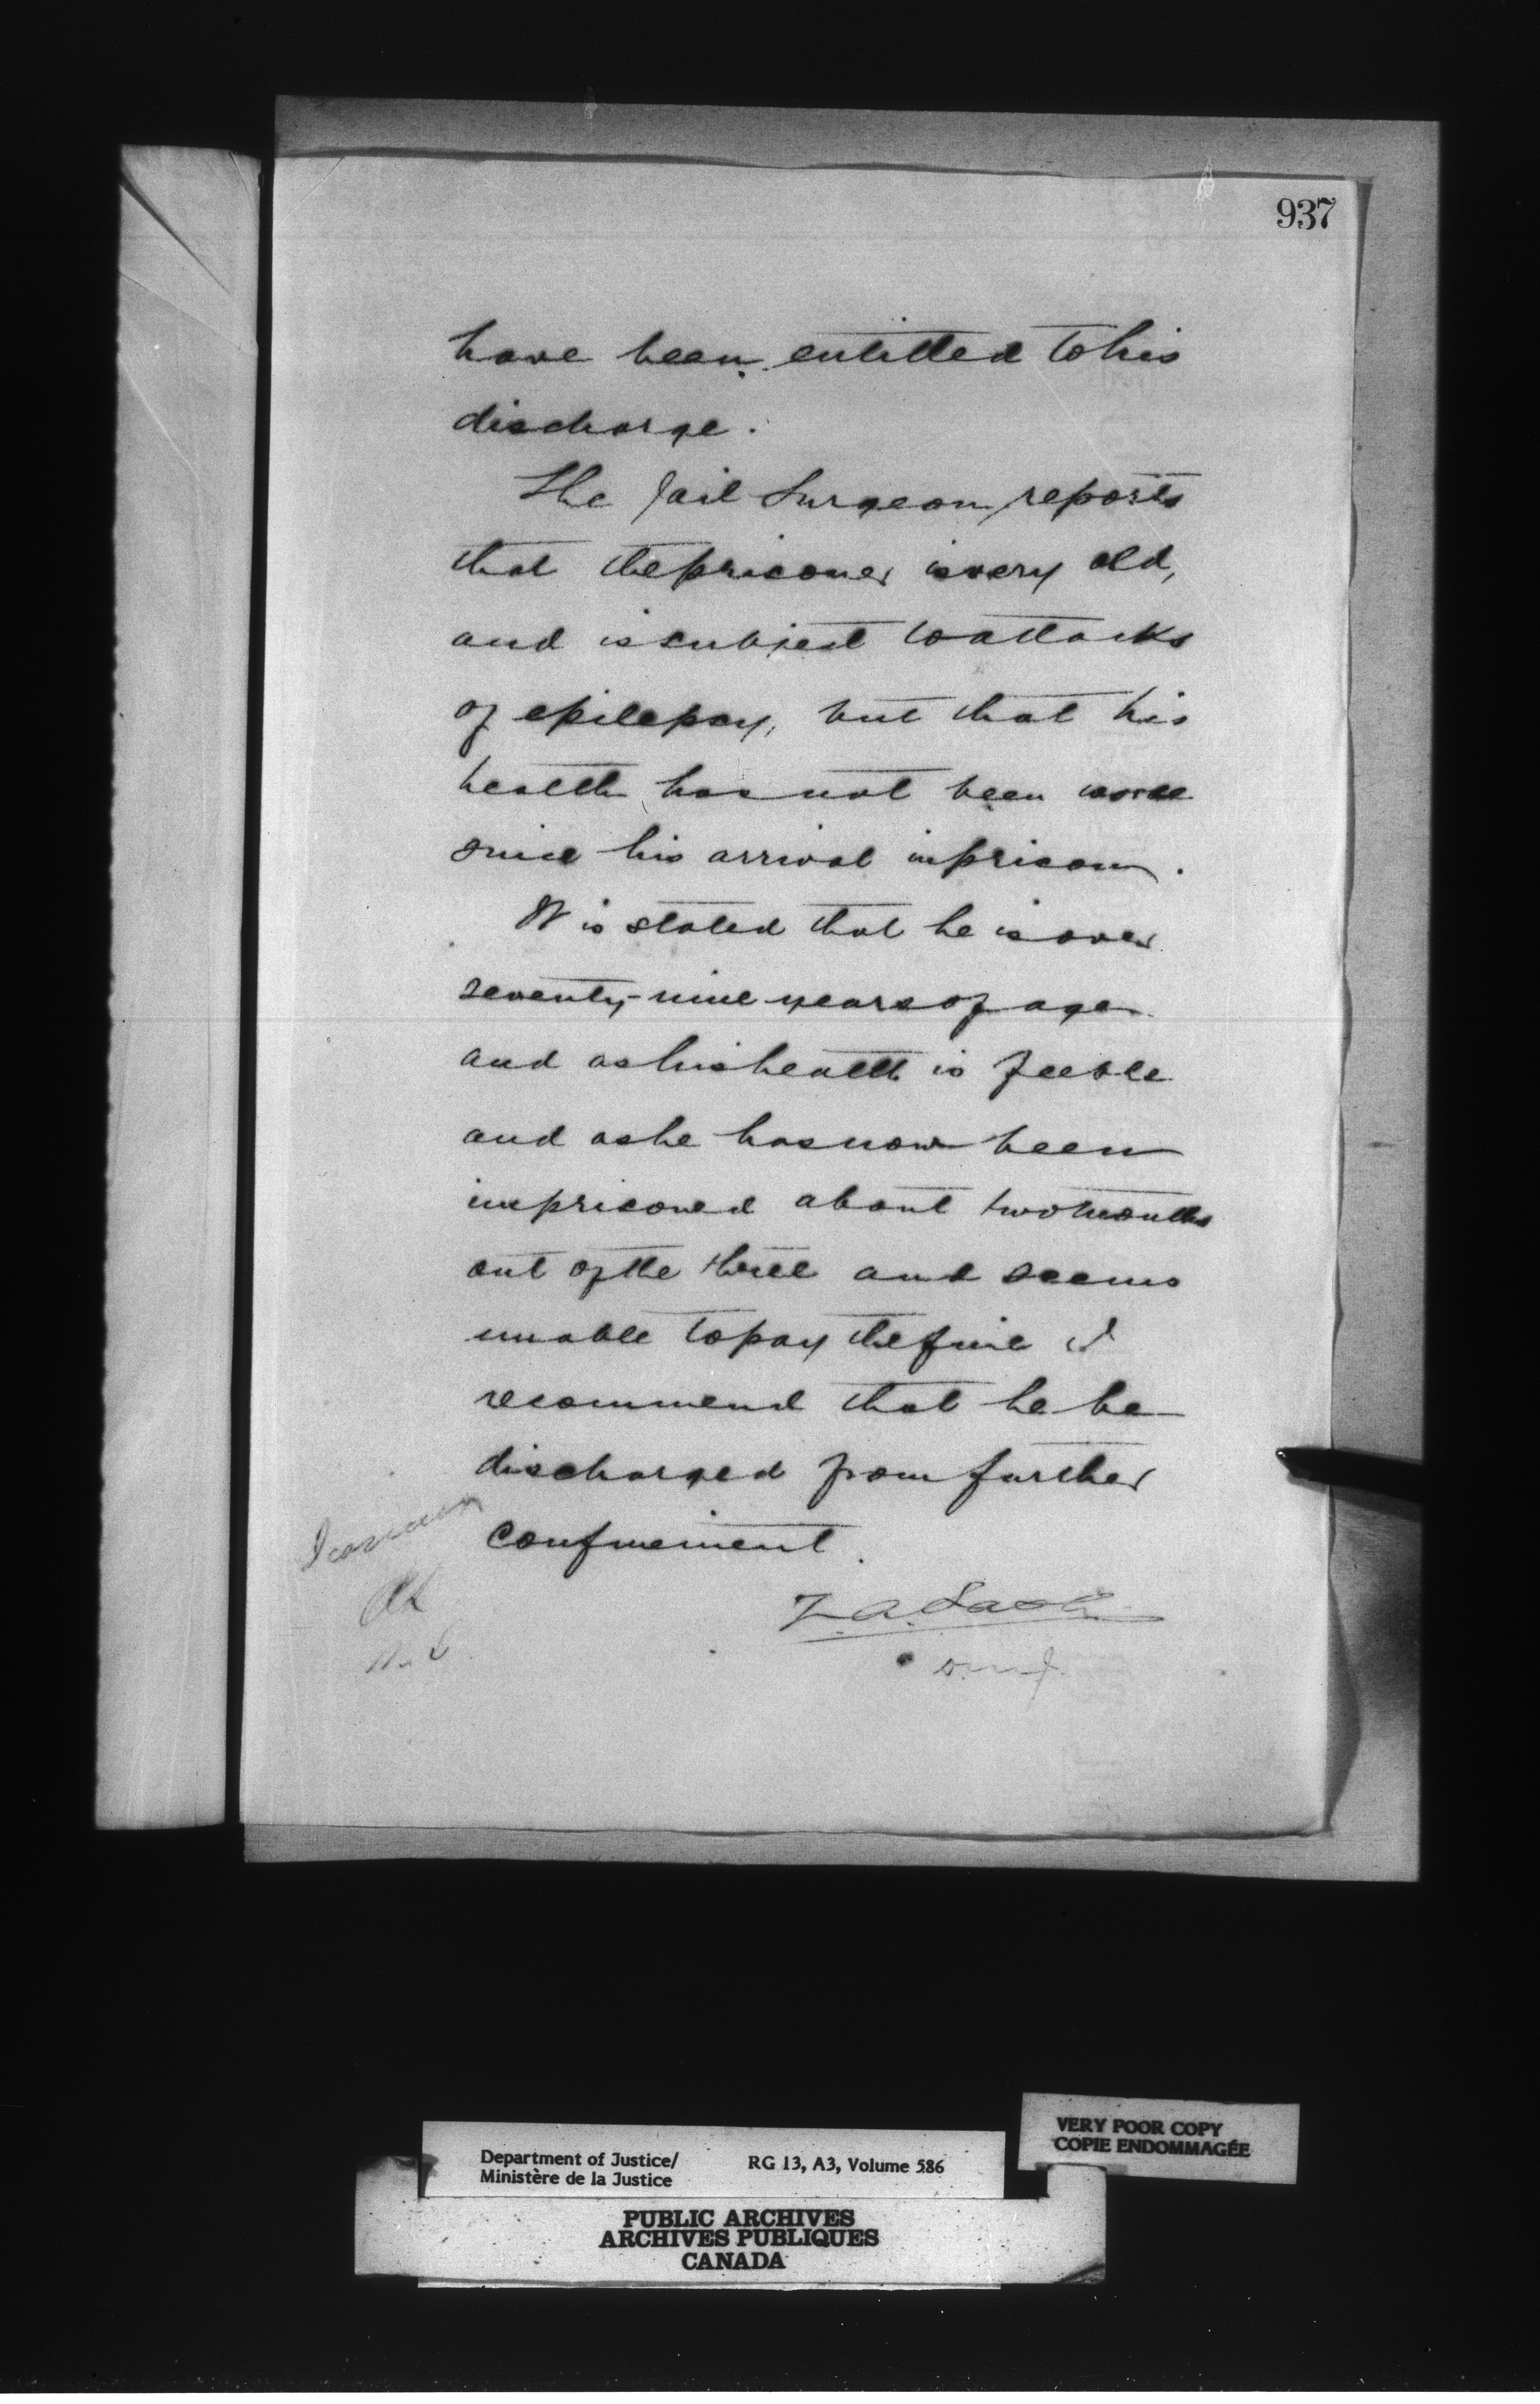 937
have been entitled to his
discharge.
The Jail Surgeon reports
that the prisoner is very old,
and is subject to attacks
of epilepsy, but that his
health has not been worse
since his arrival in prison.
It is stated that he is over
seventy-nine years of age
and as his health is feeble
and as he has now been
imprisoned about two months
out of the three and seems
unable to pay the fine I
recommend that he be
discharged from further
confinement.
I concur
Z. A. Lash
D. M. J.
Department of Justice/
Ministère de la Justice
RG 13, A3, Volume 586
VERY POOR COPY
COPIE ENDOMMAGÉE
PUBLIC ARCHIVES
ARCHIVES PUBLIQUES
CANADA